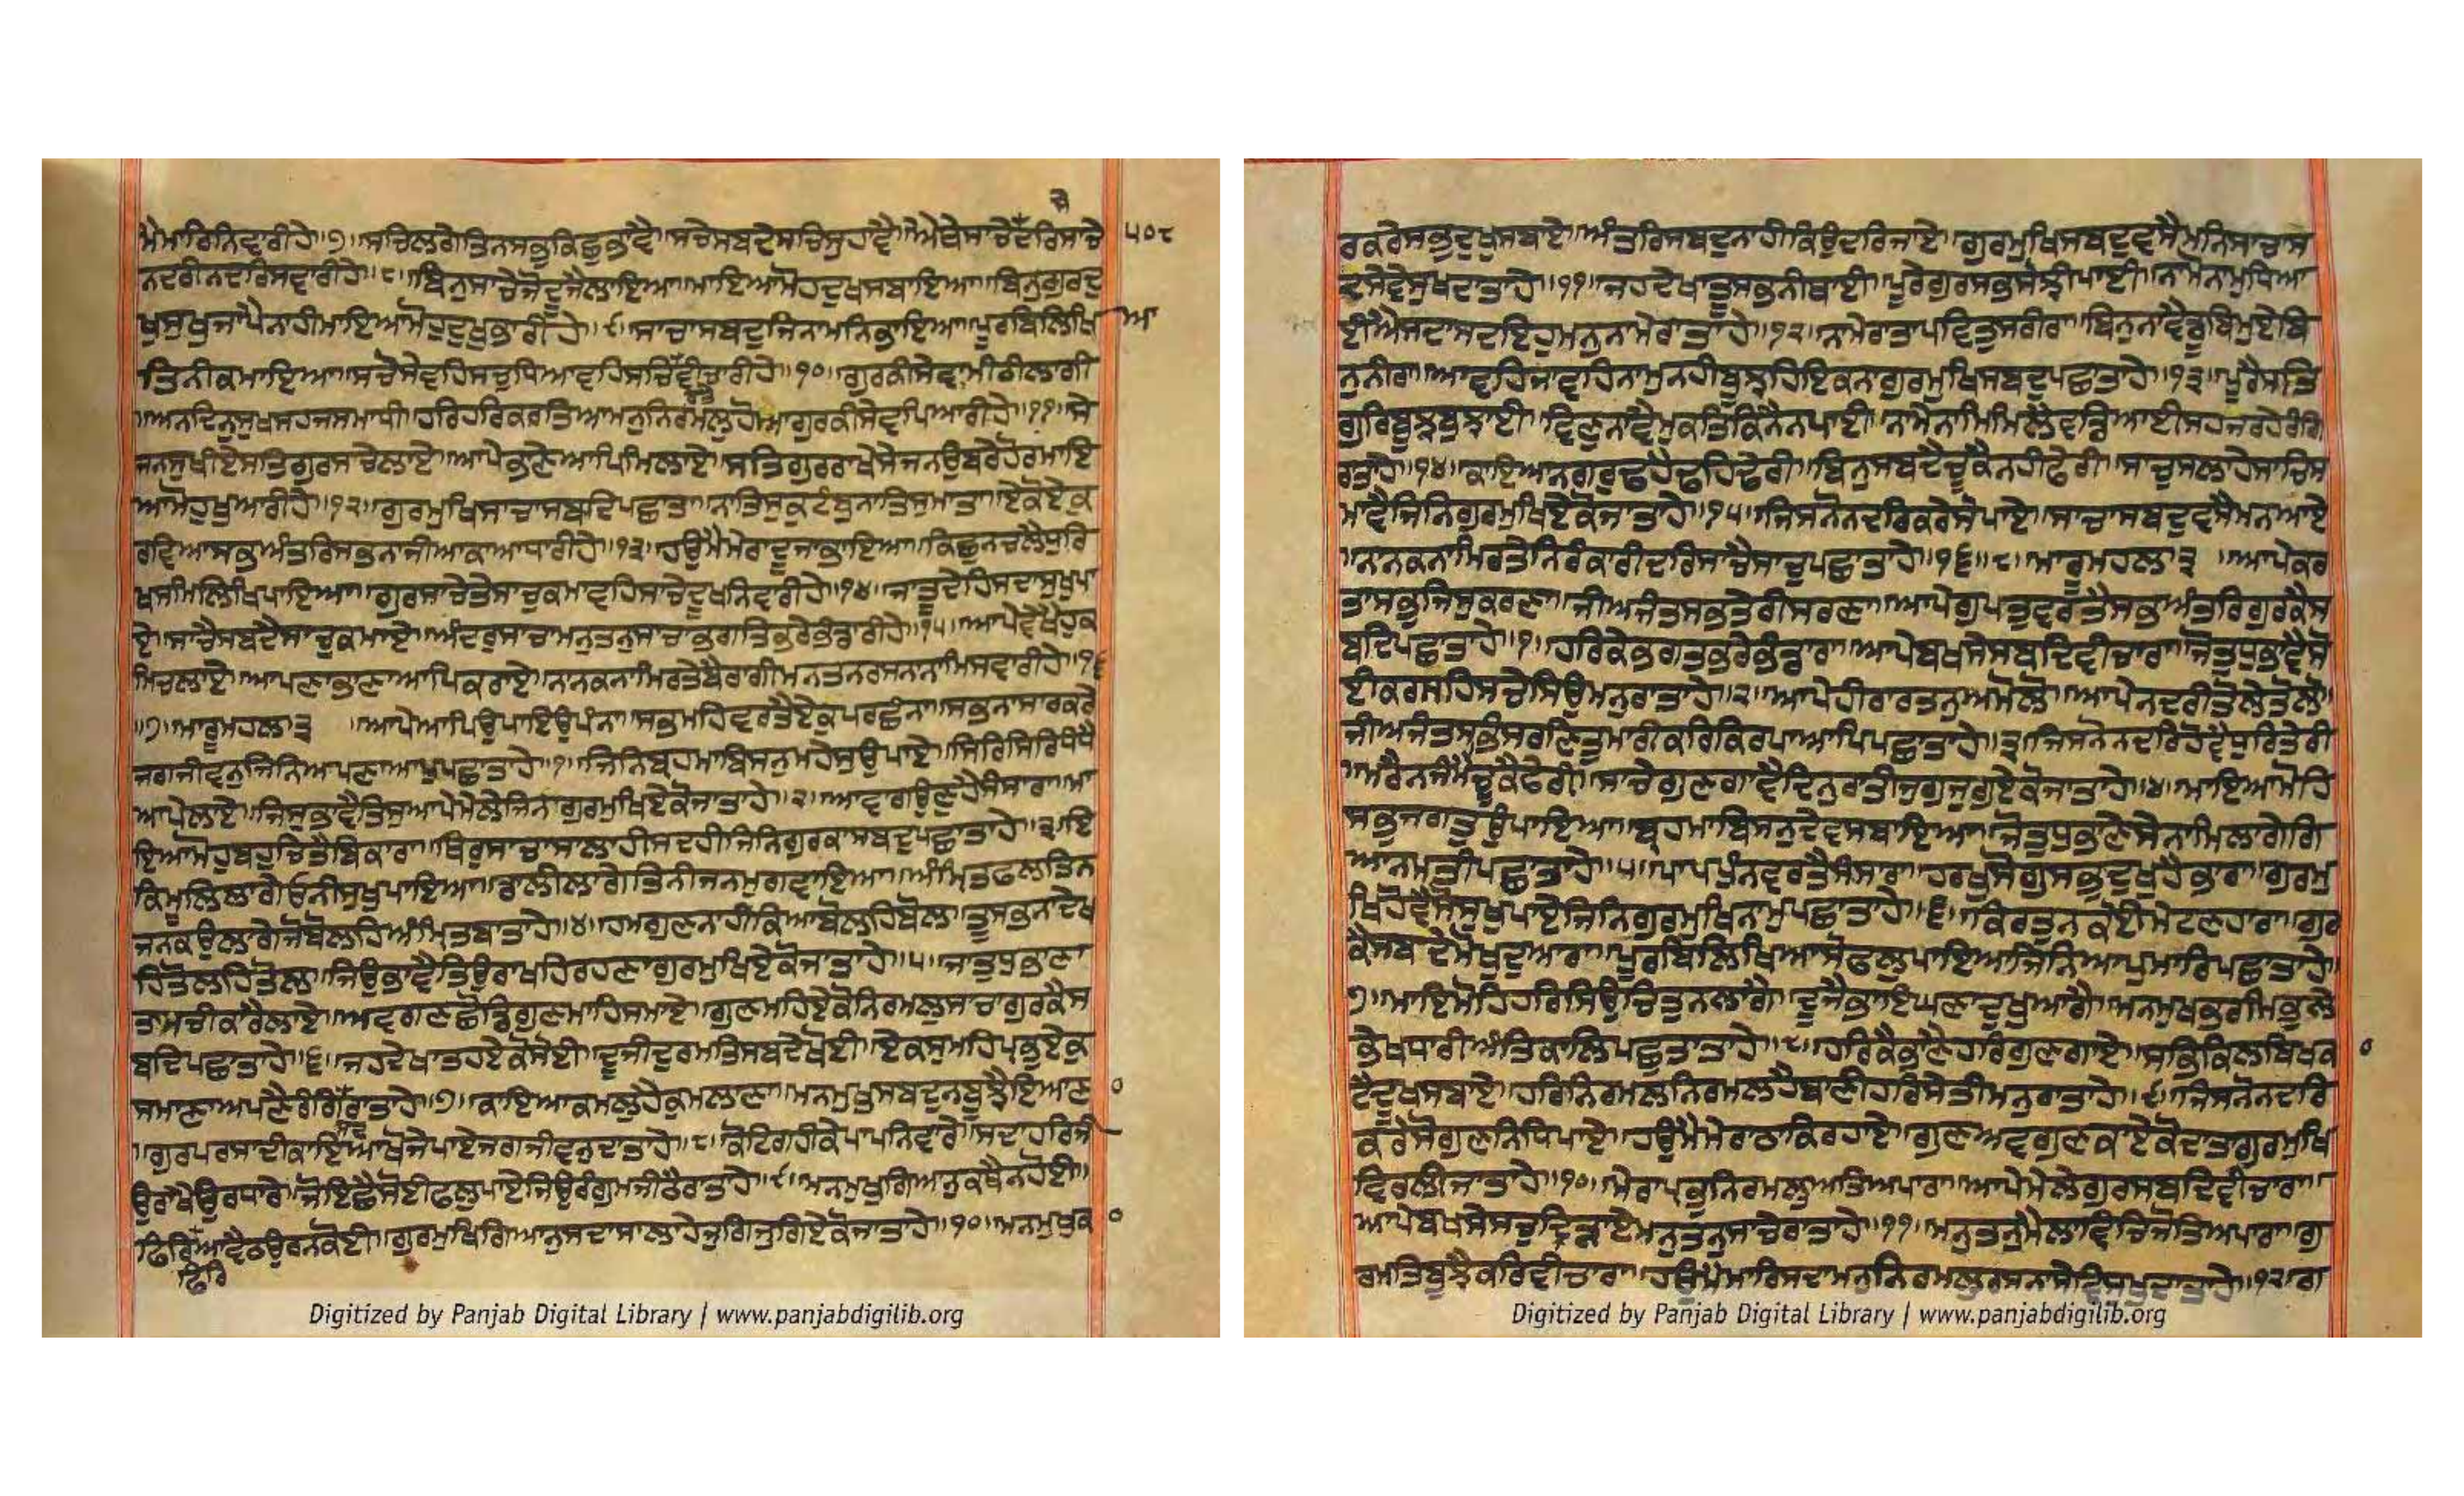 ਮੈਮਾਰਿਨਿਵਾਰੀਹੇ॥੭॥ਸਚਿਲਗੇਤਿਨਸਭੁਕਿਛੁਭਾਵੈ॥ਸਚੈਸਬਦੇਸਚਿਸੁਹਾਵੈ॥ਐਥੇਸਾਚੇਦਰਿਸਾਚੇ
੫੦੮
ਨਦਰੀਨਦਰਿਸਵਾਰੀਹੇ॥੮॥ਬਿਨੁਸਾਚੇਜੋਦੂਜੈਲਾਇਆ॥ਮਾਇਆਮੋਹਦੁਖਸਬਾਇਆ॥ਬਿਨੁਗੁਰਦੁ
ਖੁਸੁਖੁਜਾਪੈਨਾਹੀਮਾਇਆਮੋਹੁਦੁਖੁਭਾਰੀਹੇ॥੯॥ਸਾਚਾਸਬਦੁਜਿਨਾਮਨਿਭਾਇਆ॥ਪੂਰਬਿਲਿਖਿ
ਆ
ਤਿਨੀਕਮਾਇਆ॥ਸਚੋਸੇਵਹਿਸਚੁਧਿਆਵਹਿਸਚਿਵੀਚਾਰੀਹੇ॥੧੦॥ਗੁਰਕੀਸੇਵਾਮੀਠੀਲਾਗੀ
॥ਅਨਦਿਨੁਸੁਖਸਹਜਸਮਾਧੀ॥ਹਰਿਹਰਿਕਰਤਿਆਮਨੁਨਿਰਮਲੁਹੋਆਗੁਰਕੀਸੇਵਪਿਆਰੀਹੇ॥੧੧॥ਸੇ
ਜਨਸੁਖੀਏਸਤਿਗੁਰਸਚੇਲਾਏ॥ਆਪੇਭਾਣੇਆਪਿਮਿਲਾਏ॥ਸਤਿਗੁਰਰਾਖੇਸੇਜਨਉਬਰੇਹੋਰਮਾਇ
ਆਮੋਹੁਖੁਆਰੀਹੇ॥੧੨॥ਗੁਰਮੁਖਿਸਾਚਾਸਬਦਿਪਛਾਤਾ॥ਨਾਤਿਸੁਕੁਟੰਬੁਨਾਤਿਸੁਮਾਤਾ॥ਏਕੋਏਕੁ
ਰਵਿਆਸਭਅੰਤਰਿਸਭਨਾਜੀਆਕਾਆਧਾਰੀਹੇ॥੧੩॥ਹਉਮੈਮੇਰਾਦੂਜਾਭਾਇਆ॥ਕਿਛੁਨਚਲੈਧੁਰਿ
ਖਸਮਿਲਿਖਿਪਾਇਆ॥ਗੁਰਸਾਚੇਤੇਸਾਚੁਕਮਾਵਹਿਸਾਚੇਦੂਖਨਿਵਾਰੀਹੇ॥੧੪॥ਜਾਤੂਦੇਹਿਸਦਾਸੁਖੁਪਾ
ਏ॥ਸਾਚੈਸਬਦੈਸਾਚੁਕਮਾਏ॥ਅੰਦਰੁਸਾਚਾਮਨੁਤਨੁਸਾਚਾਭਗਤਿਭਰੇਭੰਡਾਰੀਹੇ॥੧੫॥ਆਪੇਵੇਖੈਹੁਕ
ਮਿਚਲਾਏ॥ਆਪਣਾਭਾਣਾਆਪਿਕਰਾਏ॥ਨਾਨਕਨਾਮਿਰਤੇਬੈਰਾਗੀਮਨਤਨਰਸਨਾਨਾਮਿਸਵਾਰੀਹੇ॥੧੬
॥੭॥ਮਾਰੂਮਹਲਾ੩॥ਆਪੇਆਪਿਉਪਾਇਉਪੰਨਾ॥ਸਭਮਹਿਵਰਤੈਏਕੁਪਰਛੰਨਾ॥ਸਭਨਾਸਾਰਕਰੇ
ਜਗਜੀਵਨੁਜਿਨਿਆਪਣਾਆਪੁਪਛਾਤਾਹੇ॥੧॥ਜਿਨਿਬ੍ਰਹਮਾਬਿਸਨੁਮਹੇਸੁਉਪਾਏ॥ਸਿਰਿਸਿਰਿਧੰਧੈ
ਆਪੇਲਾਏ॥ਜਿਸੁਭਾਵੈਤਿਸੁਆਪੇਮੇਲੇਜਿਨਿਗੁਰਮੁਖਿਏਕੋਜਾਤਾਹੇ॥੨॥ਆਵਾਗਉਣੁਹੈਸੰਸਾਰਾ॥ਮਾ
ਇਆਮੋਹੁਬਹੁਚਿਤੈਬਿਕਾਰਾ॥ਥਿਰੁਸਾਚਾਸਾਲਾਹੀਸਦਹੀਜਿਨਿਗੁਰਕਾਸਬਦੁਪਛਾਤਾਹੇ॥੩॥ਇ
ਕਿਮੂਲਿਲਾਗੇਓਨੀਸੁਖੁਪਾਇਆ॥ਡਾਲੀਲਾਗੇਤਿਨੀਜਨਮੁਗਵਾਇਆ॥ਅੰਮ੍ਰਿਤਫਲਤਿਨ
ਜਨਕਉਲਾਗੇਜੋਬੋਲਹਿਅੰਮ੍ਰਿਤਬਾਤਾਹੇ॥੪॥ਹਮਗੁਣਨਾਹੀਕਿਆਬੋਲਹਿਬੋਲ॥ਤੂਸਭਨਾਦੇਖ
ਹਿਤੋਲਹਿਤੋਲ॥ਜਿਉਭਾਵੈਤਿਉਰਾਖਹਿਰਹਣਾਗੁਰਮੁਖਿਏਕੋਜਾਤਾਹੇ॥੫॥ਜਾਤੁਧੁਭਾਣਾ
ਤਾਸਚੀਕਾਰੈਲਾਏ॥ਅਵਗਣਛੋਡਿਗੁਣਮਾਹਿਸਮਾਏ॥ਗੁਣਮਹਿਏਕੋਨਿਰਮਲੁਸਾਚਾਗੁਰਕੈਸ
ਬਦਿਪਛਾਤਾਹੇ॥੬॥ਜਹਦੇਖਾਤਹਏਕੋਸੋਈ॥ਦੂਜੀਦੁਰਮਤਿਸਬਦੇਖੋਈ॥ਏਕਸੁਮਹਿਪ੍ਰਭੁਏਕੁ
ਸਮਾਣਾਅਪਣੈਰੰਗਿਰਾਤਾਹੇ॥੭॥ਕਾਇਆਕਮਲੁਹੈਕੁਮਲਾਣਾ॥ਮਨਮੁਖੁਸਬਦੁਨਬੁਝੈਇਆਣਾ
॥ਗੁਰਪਰਸਾਦੀਕਾਇਆਖੋਜੇਪਾਏਜਗਜੀਵਨੁਦਾਤਾਹੇ॥੮॥ਕੋਟਗਹੀਕੇਪਾਪਨਿਵਾਰੇ॥ਸਦਾਹਰਿਜੀ
ਉਰਾਖੈਉਰਧਾਰੇ॥ਜੋਇਛੈਸੋਈਫਲੁਪਾਏਜਿਉਰੰਗੁਮਜੀਠੈਰਾਤਾਹੇ॥੯॥ਮਨਮੁਖੁਗਿਆਨੁਕਥੈਨਹੋਈ॥
ਫਿਰਿਆਵੈਠਉਰਨਕੋਈ॥ਗੁਰਮੁਖਿਗਿਆਨੁਸਦਾਸਾਲਾਹੇਜੁਗਿਜੁਗਿਏਕੋਜਾਤਾਹੇ॥੧੦॥ਮਨਮੁਖੁਕਾ
ਫਿਰਿ
Digitized by Panjab Digital Library | www.panjabdigilib.org
ਰਕਰੇਸਭਦੁਖਸਬਾਏ॥ਅੰਤਰਿਸਬਦੁਨਾਹੀਕਿਉਦਰਿਜਾਏ॥ਗੁਰਮੁਖਿਸਬਦੁਵਸੈਮਨਿਸਾਚਾਸ
ਦਸੇਵੇਸੁਖਦਾਤਾਹੇ॥੧੧॥ਜਹਦੇਖਾਤੂਸਭਨੀਥਾਈ॥ਪੂਰੇਗੁਰਸਭਸੋਝੀਪਾਈ॥ਨਾਮੋਨਾਮੁਧਿਆ
ਈਐਸਦਾਸਦਇਹੁਮਨੁਨਾਮੇਰਾਤਾਹੇ॥੧੨॥ਨਾਮੇਰਾਤਾਪਵਿਤੁਸਰੀਰਾ॥ਬਿਨੁਨਾਵੈਡੂਬਿਮੁਏਬਿ
ਨੁਨੀਰਾ॥ਆਵਹਿਜਾਵਹਿਨਾਮੁਨਹੀਬੂਝਹਿਇਕਨਾਗੁਰਮੁਖਿਸਬਦੁਪਛਾਤਾਹੇ॥੧੩॥ਪੂਰੈਸਤਿ
ਗੁਰਿਬੂਝਬੁਝਾਈ॥ਵਿਣੁਨਾਵੈਮੁਕਤਿਕਿਨੈਨਪਾਈ॥ਨਾਮੇਨਾਮਿਮਿਲੈਵਡਿਆਈਸਹਜਰਹੇਰੰਗਿ
ਰਾਤਾਹੇ॥੧੪॥ਕਾਇਆਨਗਰੁਢਹੈਢਹਿਢੇਰੀ॥ਬਿਨੁਸਬਦੈਚੂਕੈਨਹੀਫੇਰੀ॥ਸਾਚੁਸਲਾਹੇਸਾਚਿਸ
ਮਾਵੈਜਿਨਿਗੁਰਮੁਖਿਏਕੋਜਾਤਾਹੇ॥੧੫॥ਜਿਸਨੋਨਦਰਿਕਰੇਸੋਪਾਏ॥ਸਾਚਾਸਬਦੁਵਸੈਮਨਆਏ
॥ਨਾਨਕਨਾਮਿਰਤੇਨਿਰੰਕਾਰੀਦਰਿਸਾਚੈਸਾਚੁਪਛਾਤਾਹੇ॥੧੬॥੮॥ਮਾਰੂਮਹਲਾ੩॥ਆਪੇਕਰ
ਤਾਸਭੁਜਿਸੁਕਰਣਾ॥ਜੀਅਜੰਤਸਭਤੇਰੀਸਰਣਾ॥ਆਪੇਗੁਪਤੁਵਰਤੈਸਭਅੰਤਰਿਗੁਰਕੈਸ
ਬਦਿਪਛਾਤਾਹੇ॥੧॥ਹਰਿਕੇਭਗਤਿਭਰੇਭੰਡਾਰਾ॥ਆਪੇਬਖਸੇਸਬਦਿਵੀਚਾਰਾ॥ਜੋਤੁਧੁਭਾਵੈਸੋ
ਈਕਰਸਹਿਸਚੇਸਿਉਮਨੁਰਾਤਾਹੇ॥੨॥ਆਪੇਹੀਰਾਰਤਨੁਅਮੋਲੋ॥ਆਪੇਨਦਰੀਤੋਲੇਤੋਲੋ॥
ਜੀਅਜੰਤਸਭਿਸਰਣਿਤੁਮਾਰੀਕਰਿਕਿਰਪਾਆਪਿਪਛਾਤਾਹੇ॥੩॥ਜਿਸਨੋਨਦਰਿਹੋਵੈਧੁਰਿਤੇਰੀ
॥ਮਰੈਨਜੰਮੈਚੂਕੈਫੇਰੀ॥ਸਾਚੇਗੁਣਗਾਵੈਦਿਨੁਰਾਤੀਜੁਗਜੁਗਏਕੋਜਾਤਾਹੇ॥੪॥ਮਾਇਆਮੋਹਿ
ਸਭੁਜਗਤੁਉਪਾਇਆ॥ਬ੍ਰਹਮਾਬਿਸਨੁਦੇਵਸਬਾਇਆ॥ਜੋਤੁਧੁਭਾਣੇਸੇਨਾਮਿਲਾਗੇਗਿ
ਆਨਮਤੀਪਛਾਤਾਹੇ॥੫॥ਪਾਪਪੁੰਨਵਰਤੈਸੰਸਾਰਾ॥ਹਰਖੁਸੋਗੁਸਭਦੁਖੁਹੈਭਾਰਾ॥ਗੁਰਮੁ
ਖਿਹੋਵੈਸੋਸੁਖੁਪਾਏਜਿਨਿਗੁਰਮੁਖਿਨਾਮੁਪਛਾਤਾਹੇ॥੬॥ਕਿਰਤੁਨਕੋਈਮੇਟਣਹਾਰਾ॥ਗੁਰ
ਕੈਸਬਦੇਮੋਖਦੁਆਰਾ॥ਪੂਰਬਿਲਿਖਿਆਸੋਫਲੁਪਾਇਆਜਿਨਿਆਪੁਮਾਰਿਪਛਾਤਾਹੇ॥
੭॥ਮਾਇਮੋਹਿਹਰਿਸਿਉਚਿਤੁਨਲਾਗੈ॥ਦੂਜੈਭਾਇਘਣਾਦੁਖੁਆਗੈ॥ਮਨਮੁਖਭਰਮਿਭੁਲੇ
ਭੇਖਧਾਰੀਅੰਤਿਕਾਲਿਪਛੁਤਾਤਾਹੇ॥੮॥ਹਰਿਕੈਭਾਣੈਹਰਿਗੁਣਗਾਏ॥ਸਭਿਕਿਲਬਿਖਕਾ
ਟੇਦੂਖਸਬਾਏ॥ਹਰਿਨਿਰਮਲੁਨਿਰਮਲਹੈਬਾਣੀਹਰਿਸੇਤੀਮਨੁਰਾਤਾਹੇ॥੯॥ਜਿਸਨੋਨਦਰਿ
ਕਰੇਸੋਗੁਣਨਿਧਿਪਾਏ॥ਹਉਮੈਮੇਰਾਠਾਕਿਰਹਾਏ॥ਗੁਣਅਵਗੁਣਕਾਏਕੋਦਾਤਾਗੁਰਮੁਖਿ
ਵਿਰਲੀਜਾਤਾਹੇ॥੧੦॥ਮੇਰਾਪ੍ਰਭੁਨਿਰਮਲੁਅਤਿਅਪਾਰਾ॥ਆਪੇਮੇਲੇਗੁਰਸਬਦਿਵੀਚਾਰਾ॥
ਆਪੇਬਖਸੇਸਚੁਦ੍ਰਿੜਾਏਮਨੁਤਨੁਸਾਚੇਰਾਤਾਹੇ॥੧੧॥ਮਨੁਤਨੁਮੈਲਾਵਿਚਿਜੋਤਿਅਪਾਰਾ॥ਗੁ
ਰਮਤਿਬੂਝੈਕਰਿਵੀਚਾਰਾ॥ਹਉਮੈਮਾਰਿਸਦਾਮਨੁਨਿਰਮਲੁਰਸਨਾਸੇਵਿਸੁਖਦਾਤਾਹੇ॥੧੨॥ਗ
Digitized by Panjab Digital Library | www.panjabdigilib.org